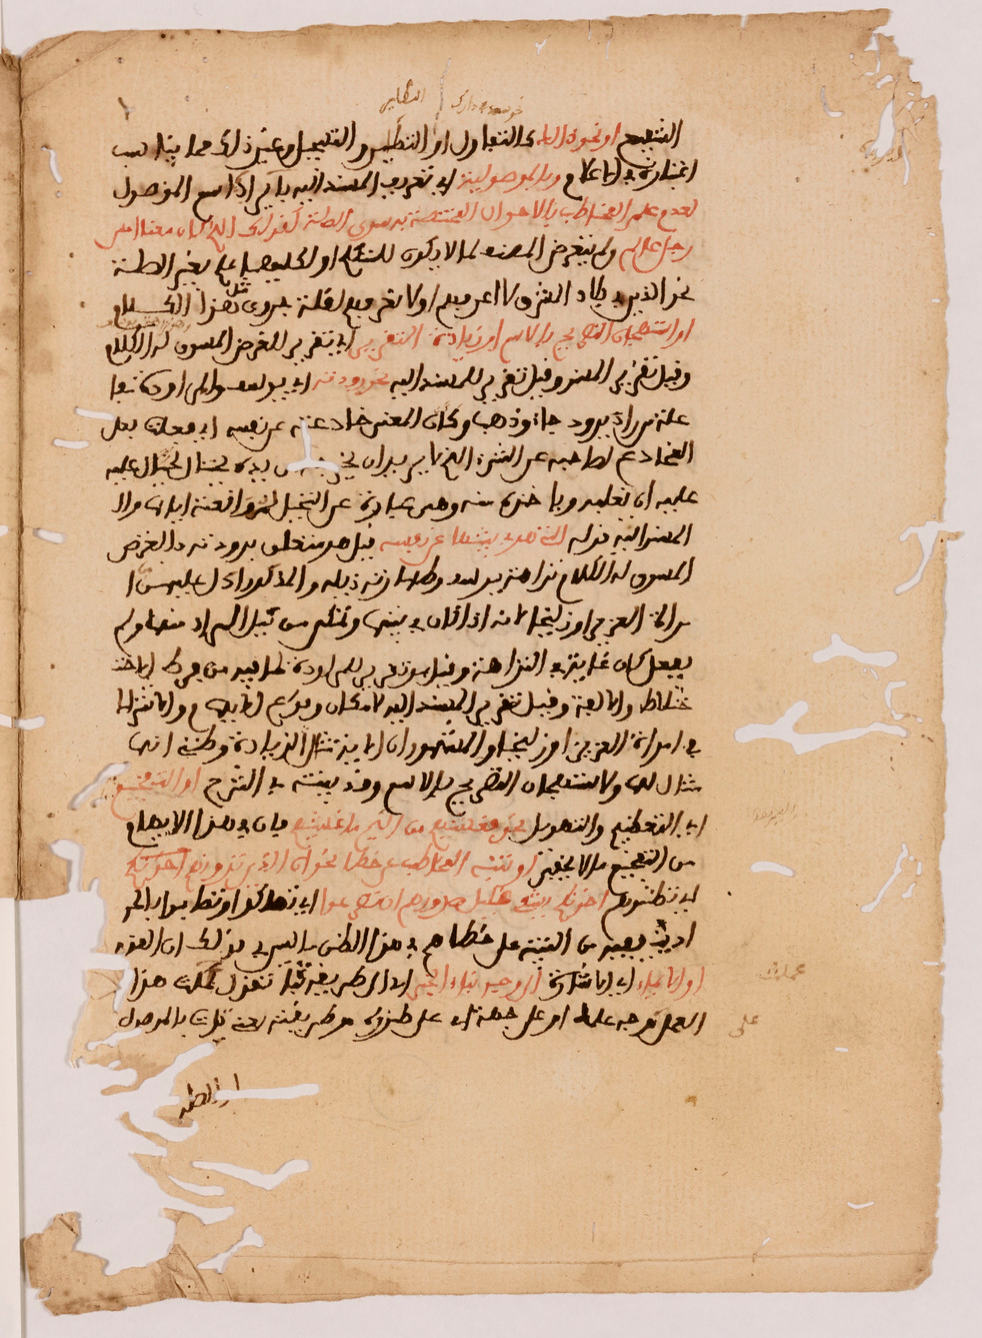 الشجيع او نحو ذلك كالتفاول او التطير والتسجيل وغير ذلك مما يناسب
اعتباره في الاعلام وبالموصولية اي تعريف المسند اليه بايراده اسم الموصول
لعدم علم المخاطب بالاحوال المختصة به سوى الصلة كقولك الذي كان معنا امس
رجل عالم ولم يتعرض المصنف لما لا يكون للمتكلم او لكليهما علم بغير الصلة
نحو الذين في بلاد الشرق لا اعرفهم او لا نعرفهم لقلة جدوى مثل هذا الكلام
او استهجان التصريح بالاسم او زيادة التقرير اي تقرير الغرض المسوق له الكلام
وقيل تقرير المسند وقيل تقرير المسند اليه نحو وراودته اي يوسف والمراودة مفا
علة من راد يرود جاء وذهب وكان المعنى خادعته عن نفسه اي فعلت فعل
المخادع لصاحبه عن الشيء الذي لا يريد ان يخرجه من يده يحتال عليه
عليه ان يغلبه وياخذه منه وهي عبارة عن التمحل لمواقعته اياها وال
المسند اليه قوله التي هو في بيتها عن نفسه قيل هو متعلق براودته فالغرض
المسوق له الكلام نزاهة يوسف وطهارة ذيله والمذكور ادل عليه من ا
مراة العزيز او زليخا لانه اذا كان في بيتها وتمكن من نيل المراد منها ولم
يفعل كان غاية في النزاهة وقيل هو تقرير للمراودة لما فيه من فرط الاخت
ختلاط والالفة وقيل تقرير للمسند اليه لامكان وقوع الابهام والاشتراك
في امراة العزيز او زليخا والمشهور ان الاية مثال لزيادة وظني انها
مثال لها ولاستهجان التصريح بالاسم وقد بينته في الشرح او التفخيم
اي التعظيم والتهويل نحو فغشيهم من اليم ما غشيهم فان في هذا الابهام
من التفخيم ما لا يخفى او تنبيه المخاطب على خطا نحو ان الذين ترونهم اخوانكم
اي تظنونهم اخوانكم يشفي غليل صدورهم ان تصرعوا اي تهلكوا او تصابوا بالحو
ادث ففيه من التنبيه على خطاهم في هذا الظن ما ليس في قولك ان القوم
او الايماء اي الاشارة الى وجه بناء الخبر اي الى طريقه تقول عملت هذا
العمل على وجه عملك او على جهته اي على طرزه وطريقته يعني تاتي بالموصول